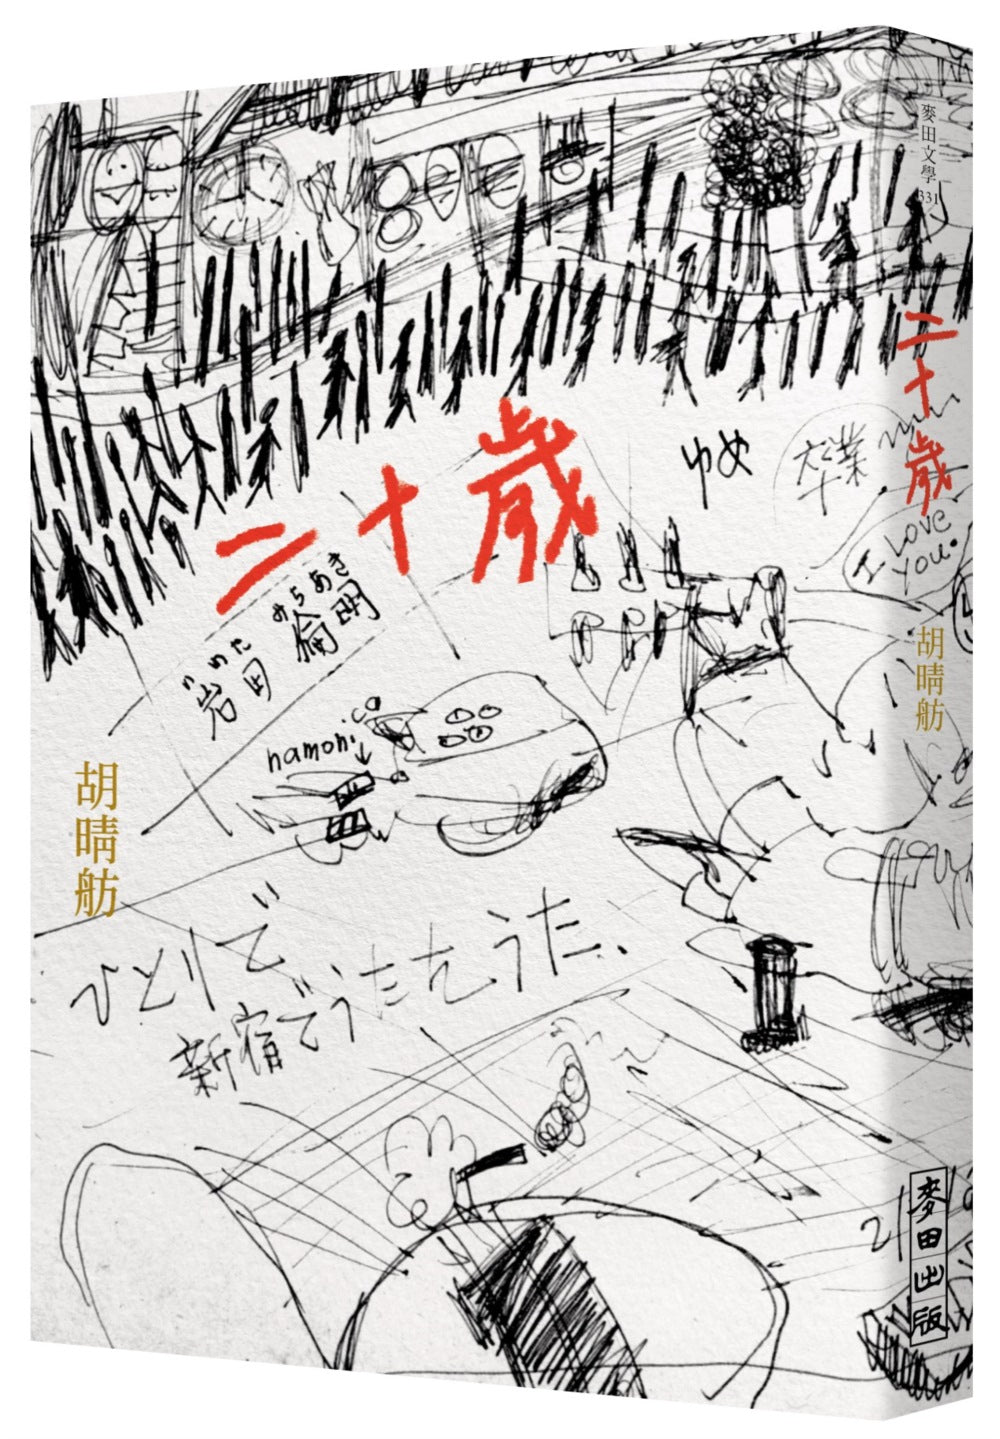 二十歲
ゆめ
卒業
いわた みちあき
岩田 倫明
hamonica
ひとりで
新宿でうたをうた、
胡晴舫
麥田文學 331
二十歲
I LOVE YOU.
胡晴舫
麥田出版